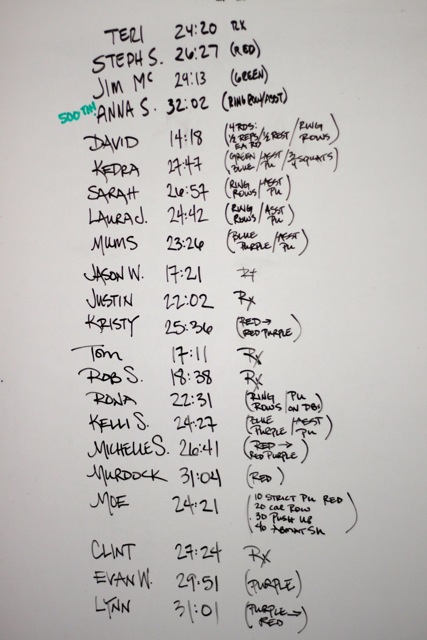 TERI 24:20 RX
STEPH S. 26:27 (RED)
JIM Mc 29:13 (GREEN)
500TH! ANNA S. 32:02 (RING ROW/ASST)
DAVID 14:18 (4 RDS: 1/2 REPS/1/2 REST EA RD / RING ROWS)
KEDRA 27:47 (GREEN/ASST BLUE PU / 3/4 SQUATS)
SARAH 26:57 (RING ROWS/ASST PU)
LAURA J. 24:42 (RING ROWS/ASST PU)
MUMS 23:26 (BLUE PURPLE/ASST PU)
JASON W. 17:21 RX
JUSTIN 22:02 RX
KRISTY 25:36 (RED → RED PURPLE)
TOM 17:11 RX
ROB S. 18:38 RX
RONA 22:31 (RING ROWS / PU ON DBs)
KELLI S. 24:27 (BLUE PURPLE/ASST PU)
MICHELLE S. 26:41 (RED → RED PURPLE)
MURDOCK 31:04 (RED)
MOE 24:21 (10 STRICT PU RED
20 ROW
30 PUSH UP
40)
CLINT 27:24 RX
EVAN W. 29:51 (PURPLE)
LYNN 31:01 (PURPLE → RED)